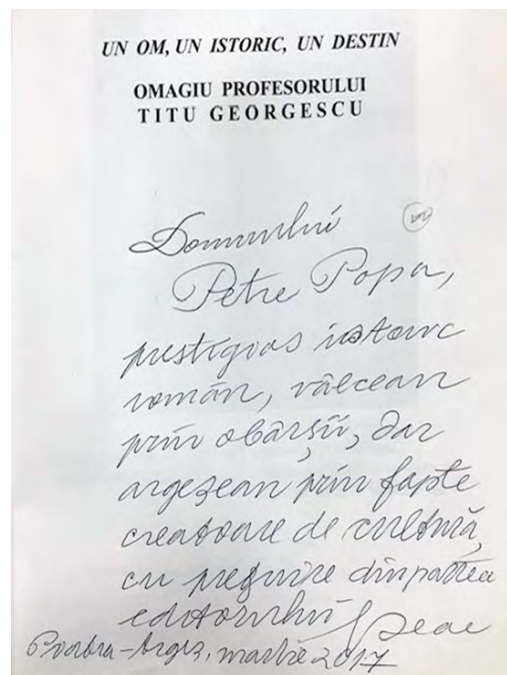 UN OM, UN ISTORIC, UN DESTIN
OMAGIU PROFESORULUI
TITU GEORGESCU
Domnului
Petre Popa,
prestigios istoric
român, vâlcean
prin obârșii, dar
argeșean prin fapte
creatoare de cultură,
cu prețuire din partea
editorului
-Argeș, martie 2017